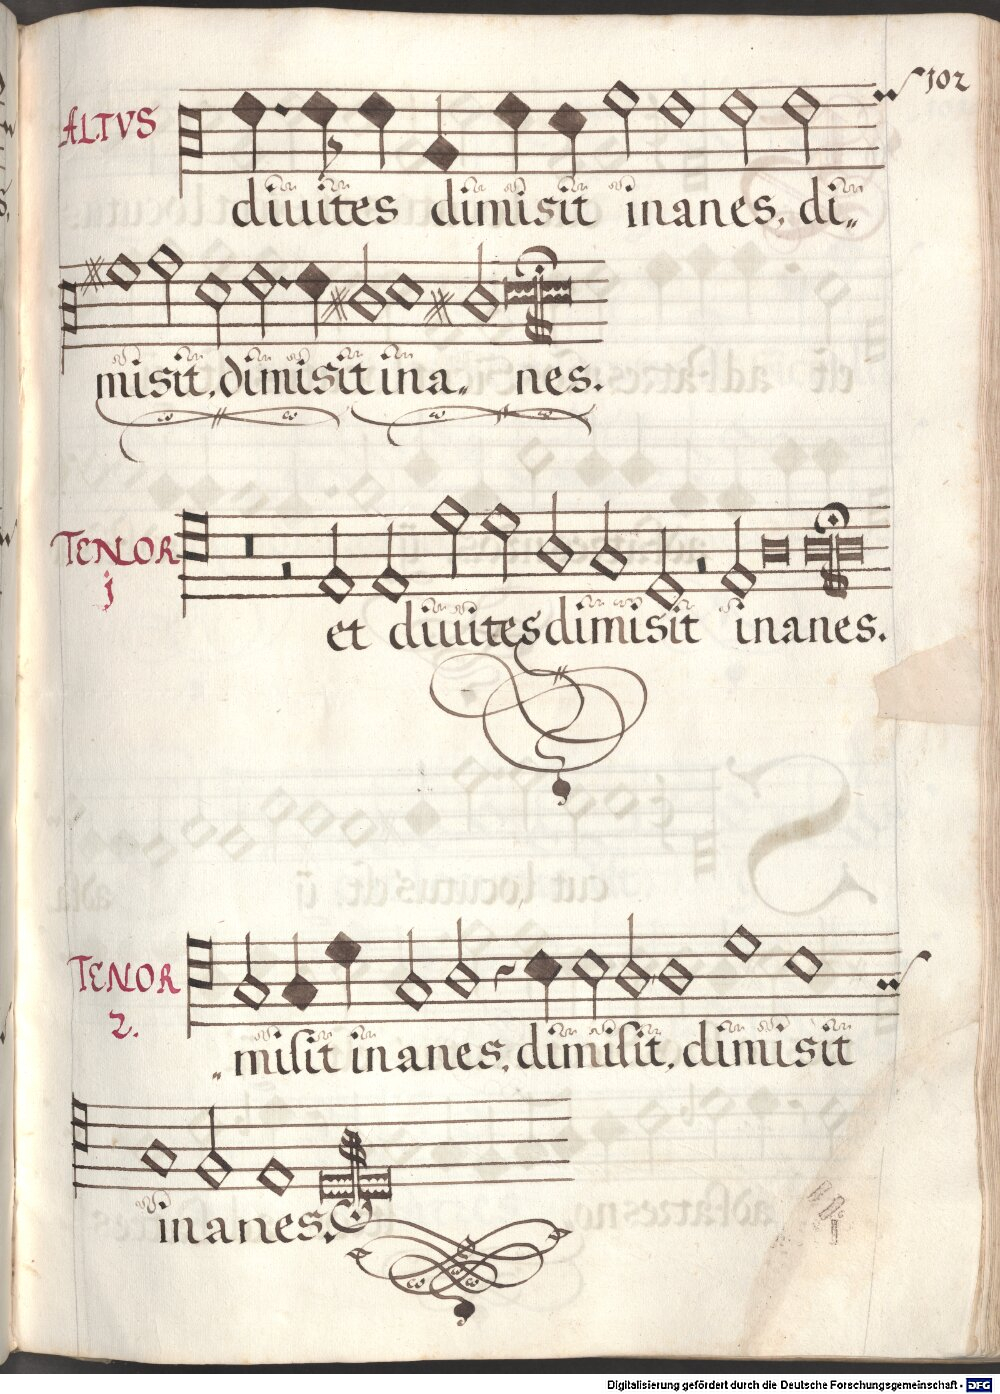 102
ALTVS
diuites dimisit inanes, di„
misit, dimisit ina„ nes.
TENOR
j
et diuites dimisit inanes.
TENOR
2.
„misit inanes, dimisit, dimisit
inanes.
Digitalisierung gefördert durch die Deutsche Forschungsgemeinschaft - DFG